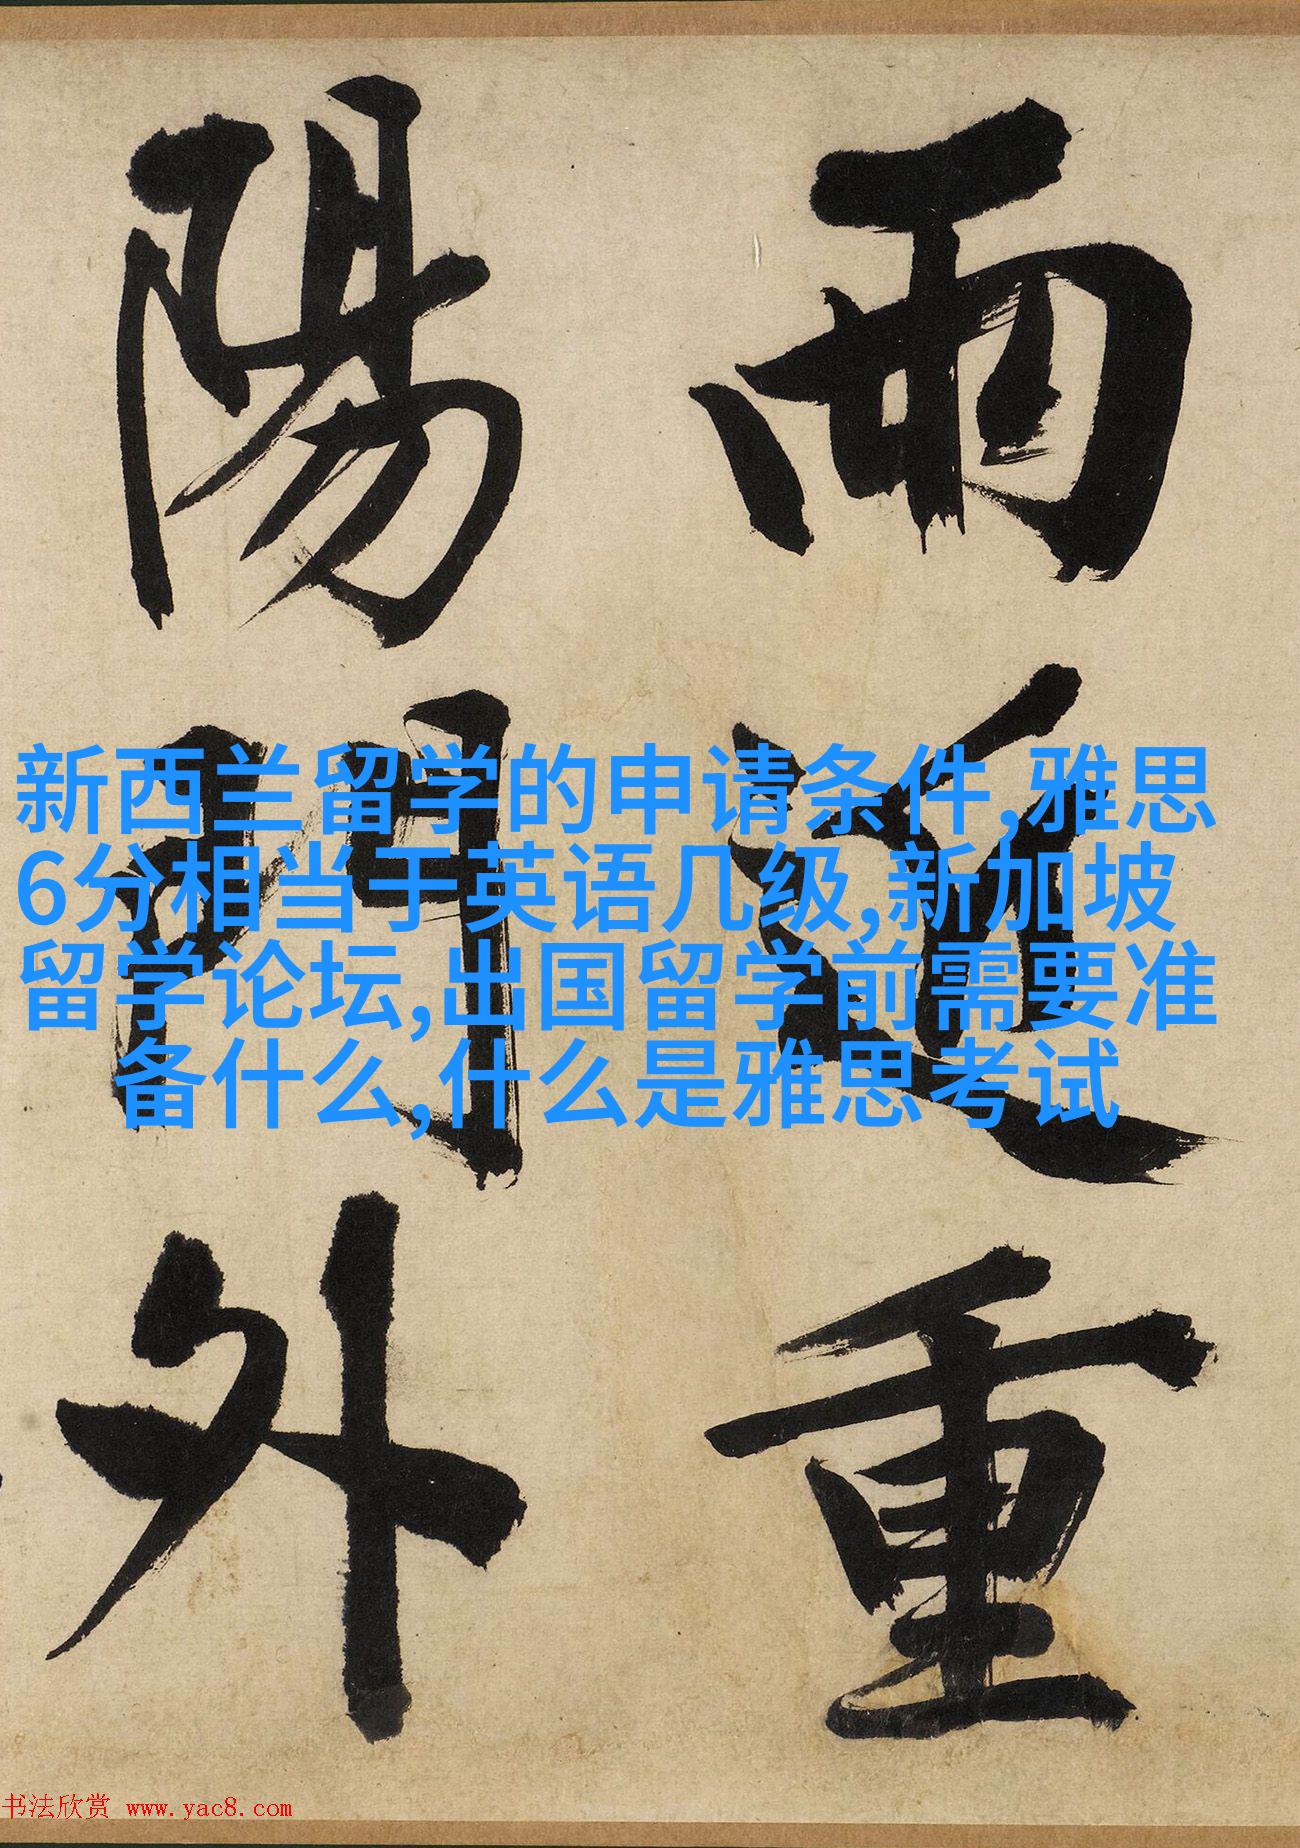 雨近重
陽門外
新西兰留学的申请条件,雅思
6分相当于英语几级,新加坡
留学论坛,出国留学前需要准
备什么,什么是雅思考试
书法欣赏 www.yac8.com